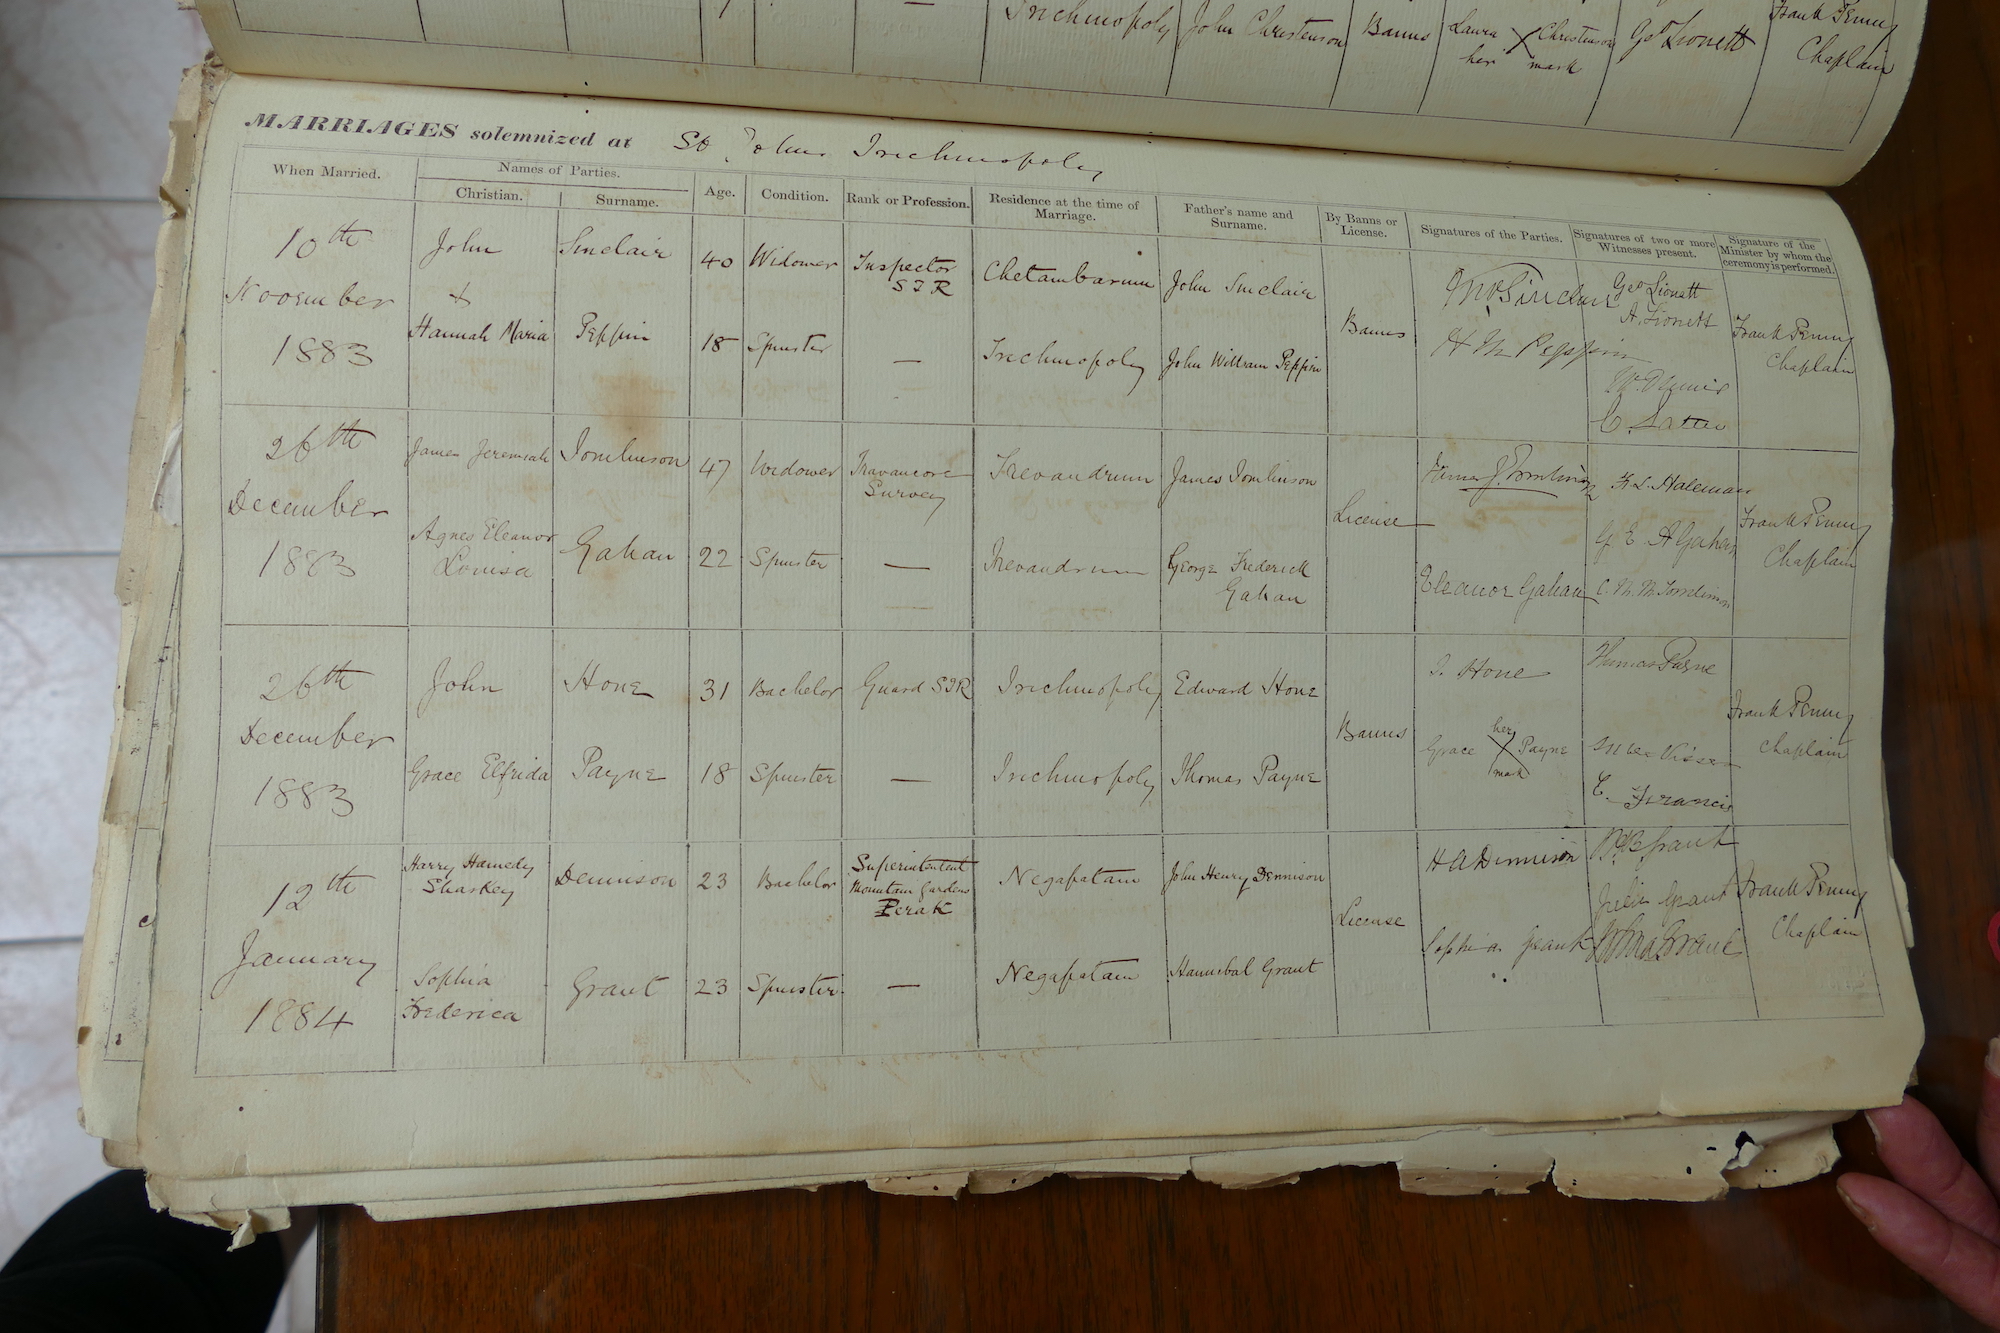 Trichinopoly John Christenson Banns Laura X Christenson Geo Lionett Frank Penny
her mark Chaplain
MARRIAGES solemnized at St Johns Trichinopoly
When Married. Names of Parties. Christian. Surname. Age. Condition. Rank or Profession. Residence at the time of Marriage. Father's name and Surname. By Banns or License. Signatures of the Parties. Signatures of two or more Witnesses present. Signature of the Minister by whom the ceremony is performed.
10th November 1883
John Sinclair 40 Widower Inspector S I R Chetambarum John Sinclair
+
Hannah Maria Peppin 18 Spinster — Trichinopoly John William Peppin
Banns
Jno Sinclair
H M Peppin
Geo Lionett
A. Lionett
Frank Penny
Chaplain
26th December 1883
James Jeremiah Tomlinson 47 Widower Travancore Survey Trevandrum James Tomlinson
Agnes Eleanor Louisa Gahan 22 Spinster — Trevandrum George Frederick Gahan
License
James J. Tomlinson
Eleanor Gahan
G E A Gahan
C. M. M Tomlinson
Frank Penny
Chaplain
26th December 1883
John Hone 31 Bachelor Guard SIR Trichinopoly Edward Hone
Grace Elfrida Payne 18 Spinster — Trichinopoly Thomas Payne
Banns
J. Hone
Grace X Payne
her mark
Thomas Payne
E. Francis
Frank Penny
Chaplain
12th January 1884
Harry Hamedy Sharkey Dennison 23 Bachelor Superintentent Mountain Gardens Perak Negapatam John Henry Dennison
Sophia Frederica Grant 23 Spinster — Negapatam Hannibal Grant
License
H A Dennison
Sophia Grant
Julia Grant
Frank Penny
Chaplain